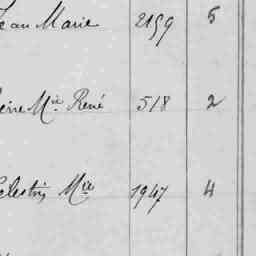 Jean Marie 2159 5
Pierre Mie René 518 2
Célestin Mie 1947 4